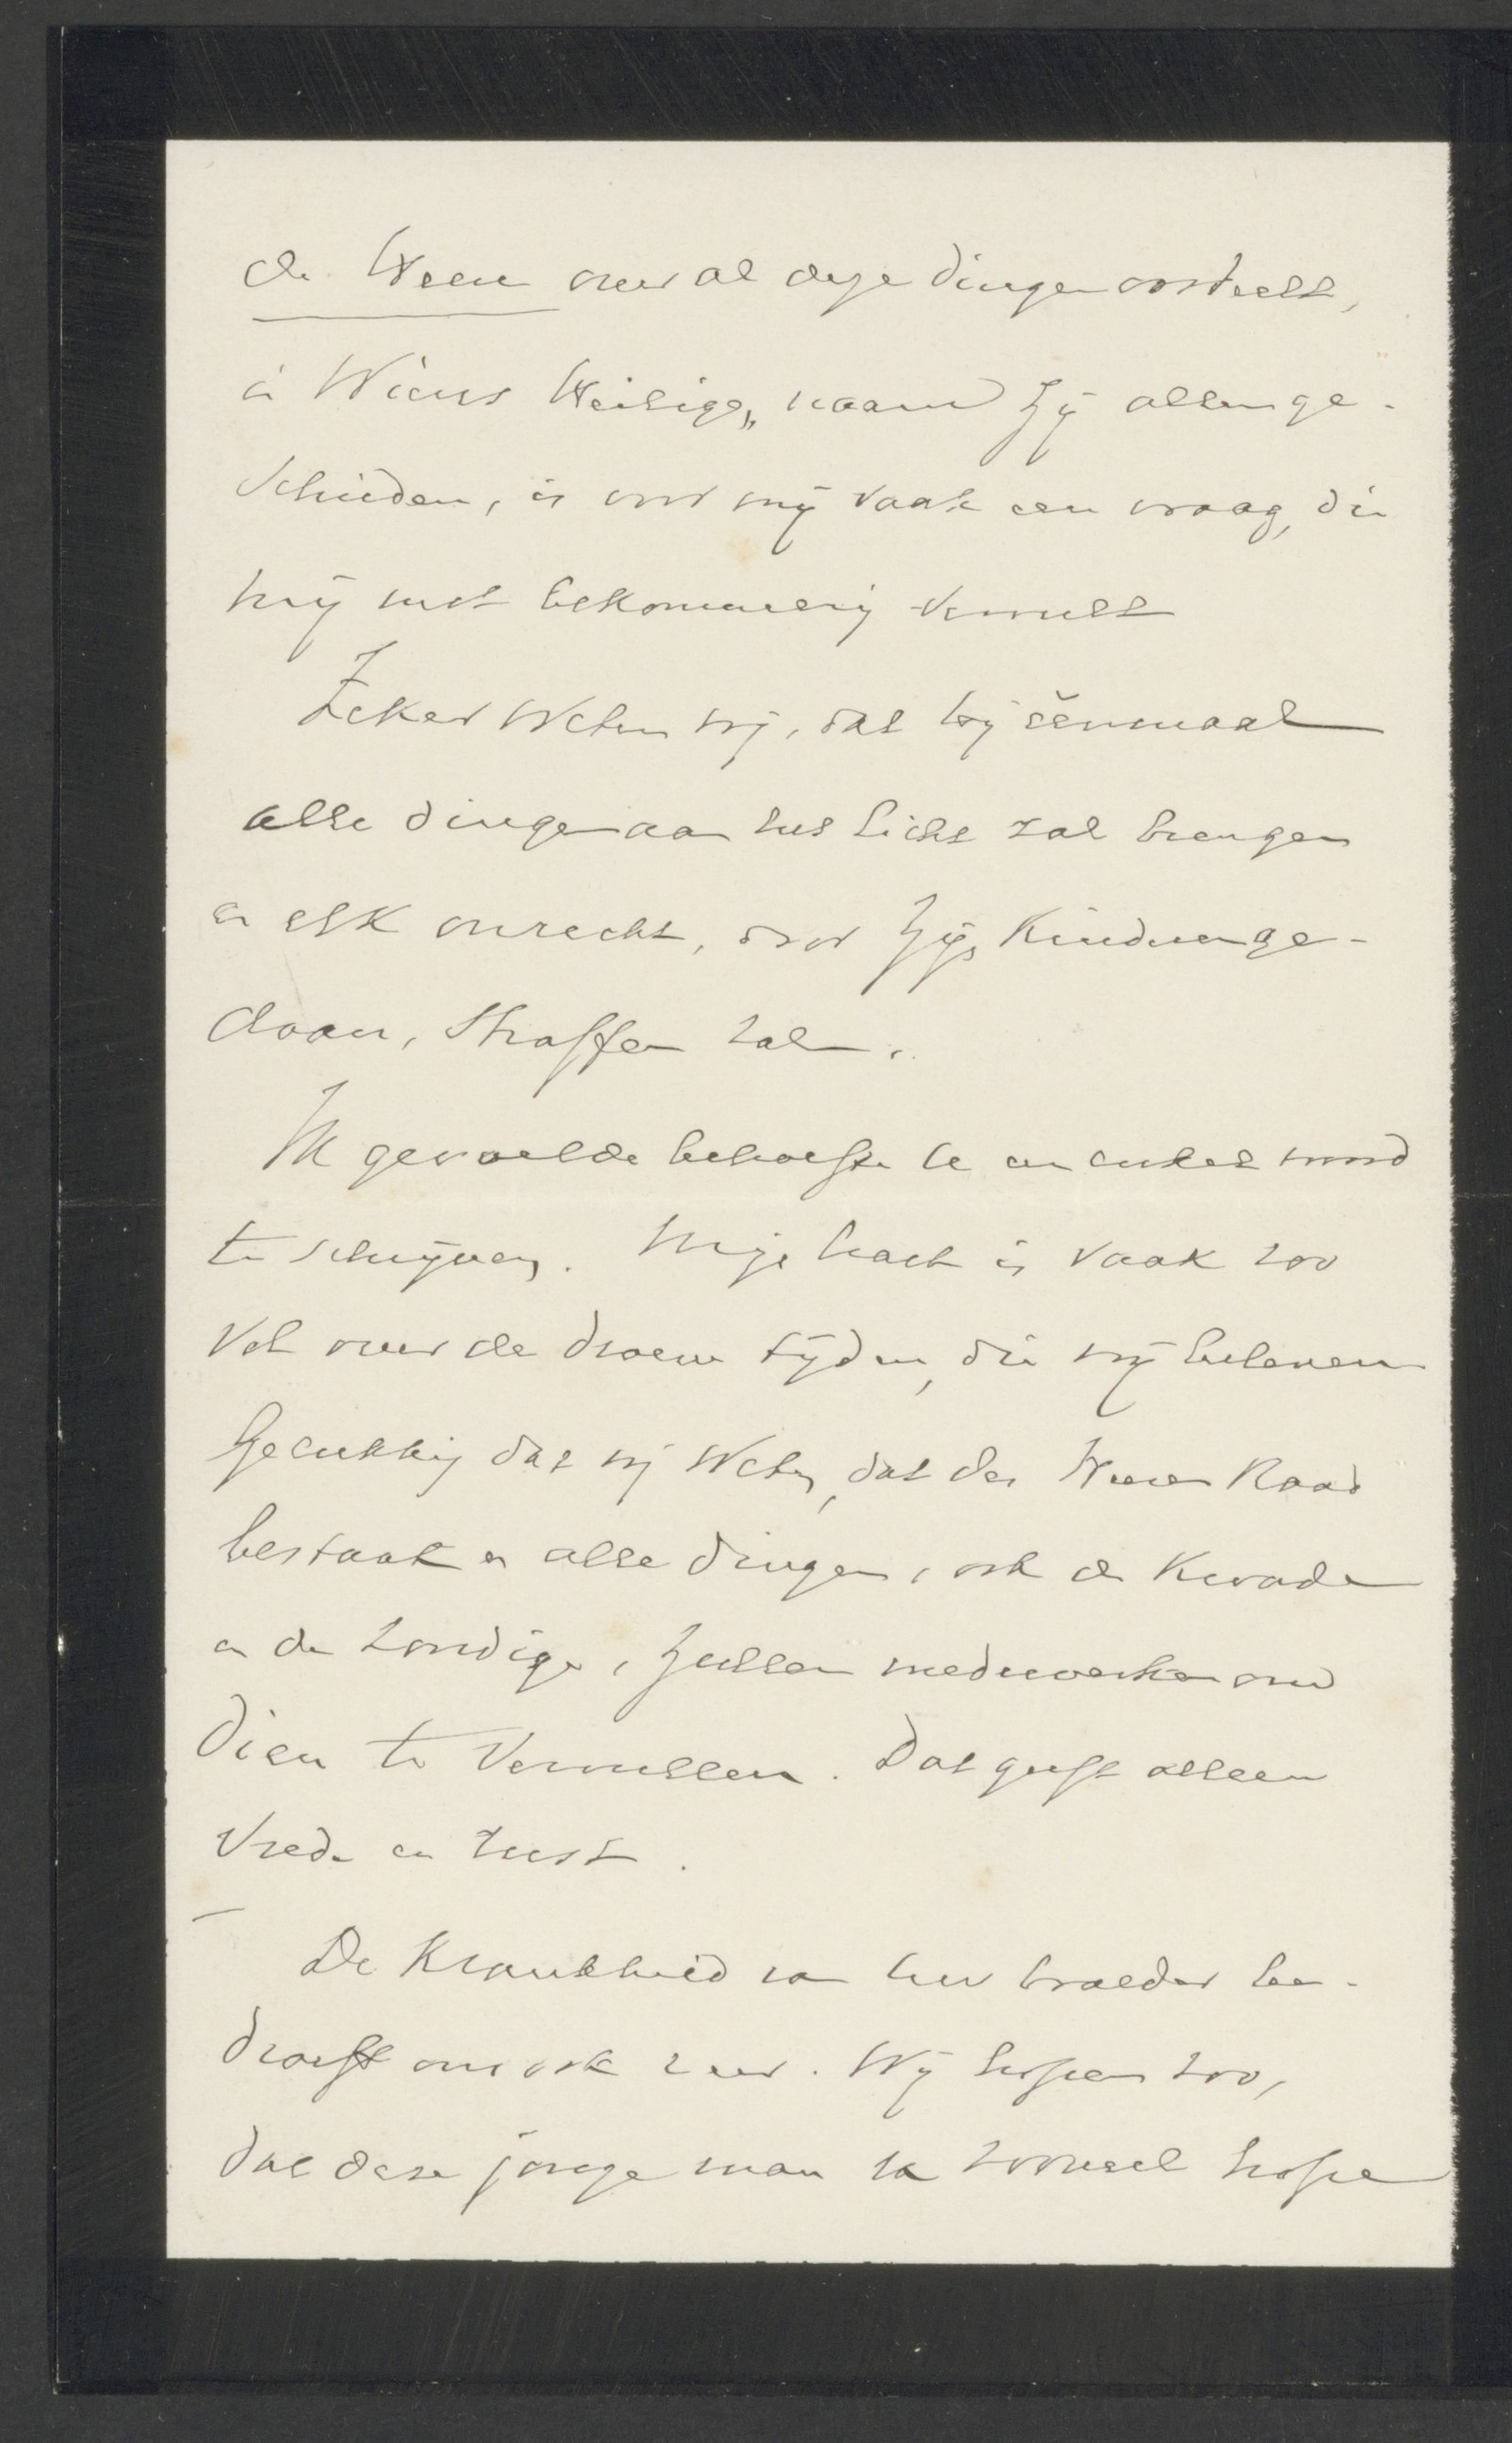 de Heere over al deze dingen oordeelt,
in Wiens Heilige, naam zij allen ge-
schieden, is voor mij vaak een vraag, die
mij met bekommering vervult
Zeker weten wij, dat hij éénmaal
alle dingen aan het licht zal brengen
en elk onrecht, door zijn kinderen ge-
daan, straffen zal.
Ik gevoelde behoefte U een enkel woord
te schrijven. Mijn hart is vaak zoo
vol over de droeve tijden, die wij beleven
Gelukkig dat wij weten, dat des Heeren Raad
bestaat en alle dingen, ook de kwade
en de zondige, zullen medewerken om
dien te vervullen. Dat geeft alleen
vrede en rust.
De krankheid van Uw broeder be-
droeft ons ook zeer. Wij hopen zoo,
dat deze jonge man zooveel hope